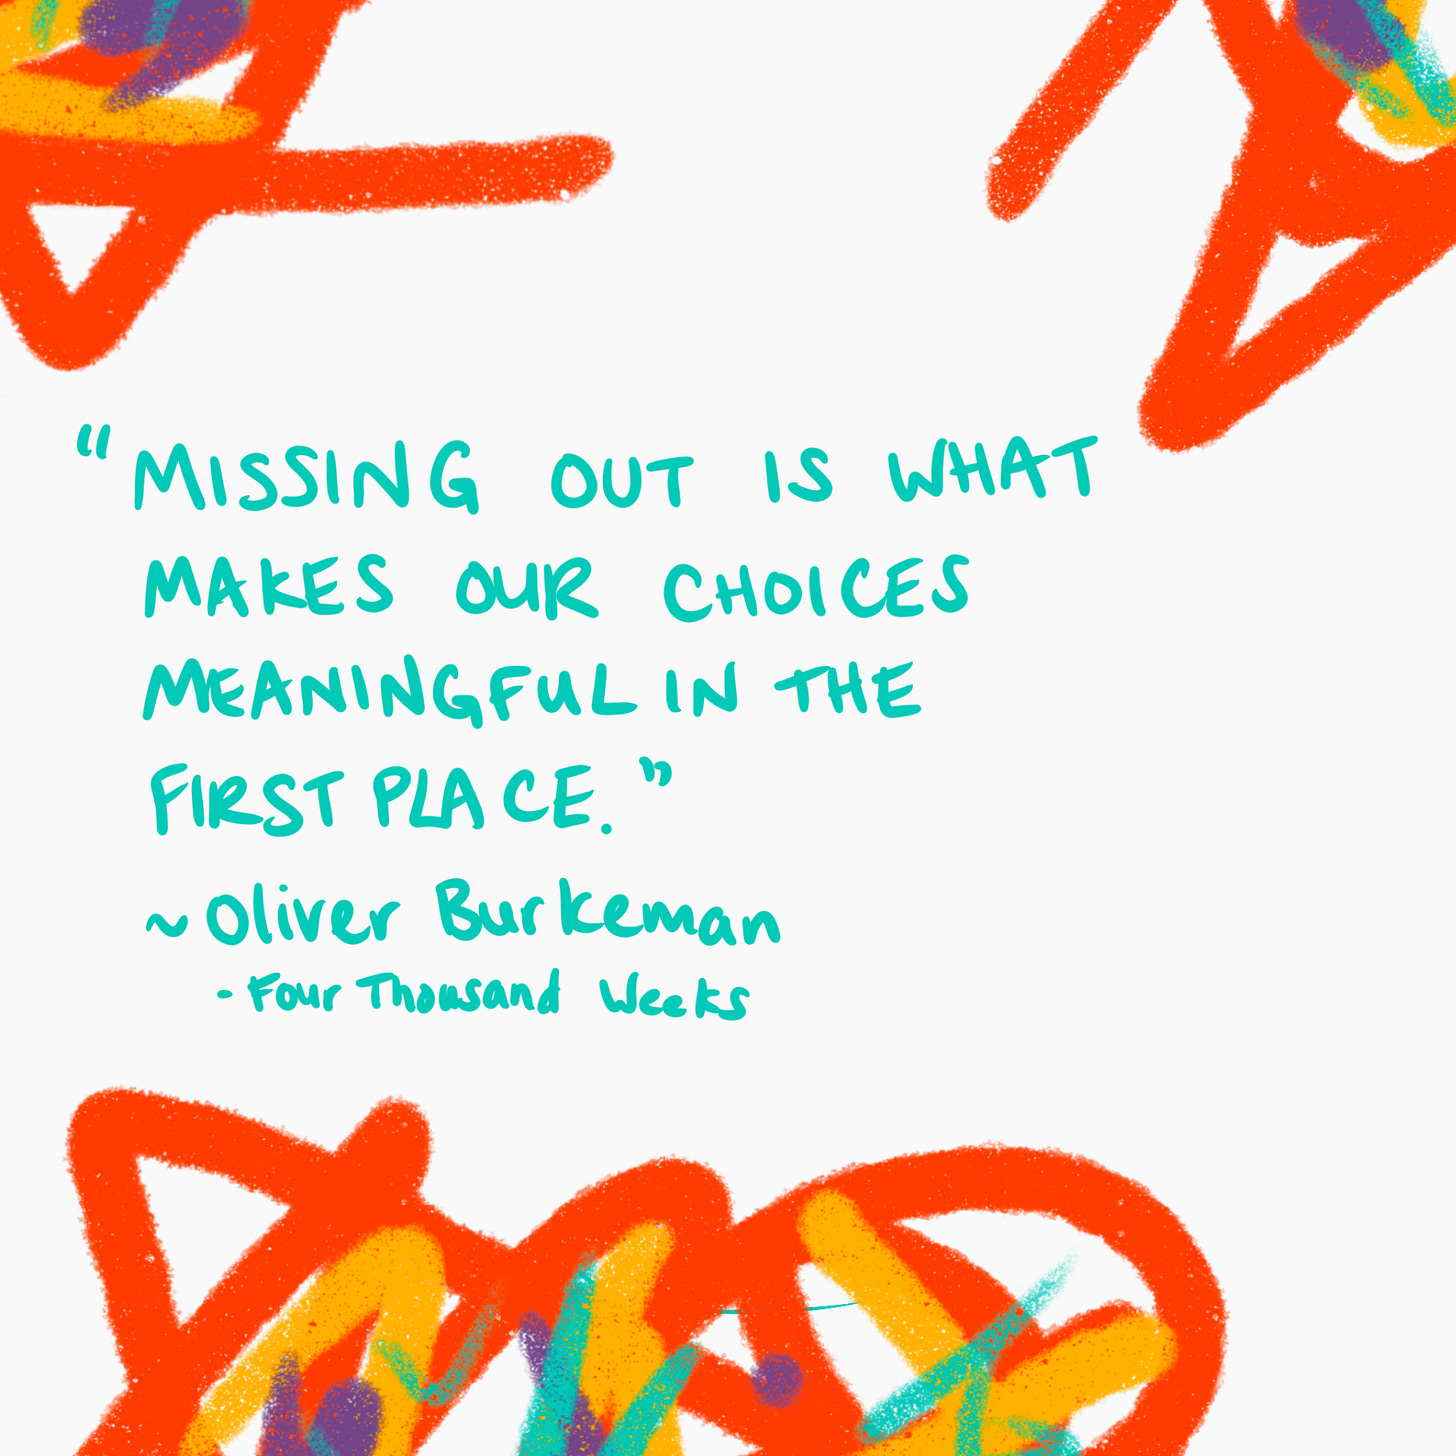 “MISSING OUT IS WHAT
MAKES OUR CHOICES
MEANINGFUL IN THE
FIRST PLACE.”
~Oliver Burkeman
- Four Thousand Weeks